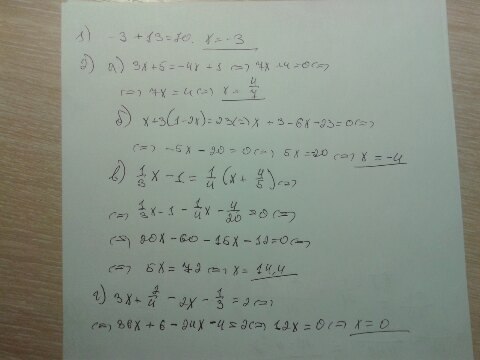 1) -3 + 13 = 10. x = -3
2) а) 3x + 5 = -4x + 1 (=) 7x + 4 = 0 (=)
(=) 7x = 4 (=) x = 4/7
б) x + 3(1 - 2x) = 23 (=) x + 3 - 6x - 23 = 0 (=)
(=) -5x - 20 = 0 (=) 5x = 20 (=) x = -4
в) 1/3 x - 1 = 1/4 (x + 4/5) (=)
(=) 1/3 x - 1 - 1/4 x - 4/20 = 0 (=)
(=) 20x - 60 - 15x - 12 = 0 (=)
(=) 5x = 72 (=) x = 14,4
г) 3x + 2/4 - 2x - 1/3 = 2 (=)
(=) 36x + 6 - 24x - 4 = 2 (=) 12x = 0 (=) x = 0